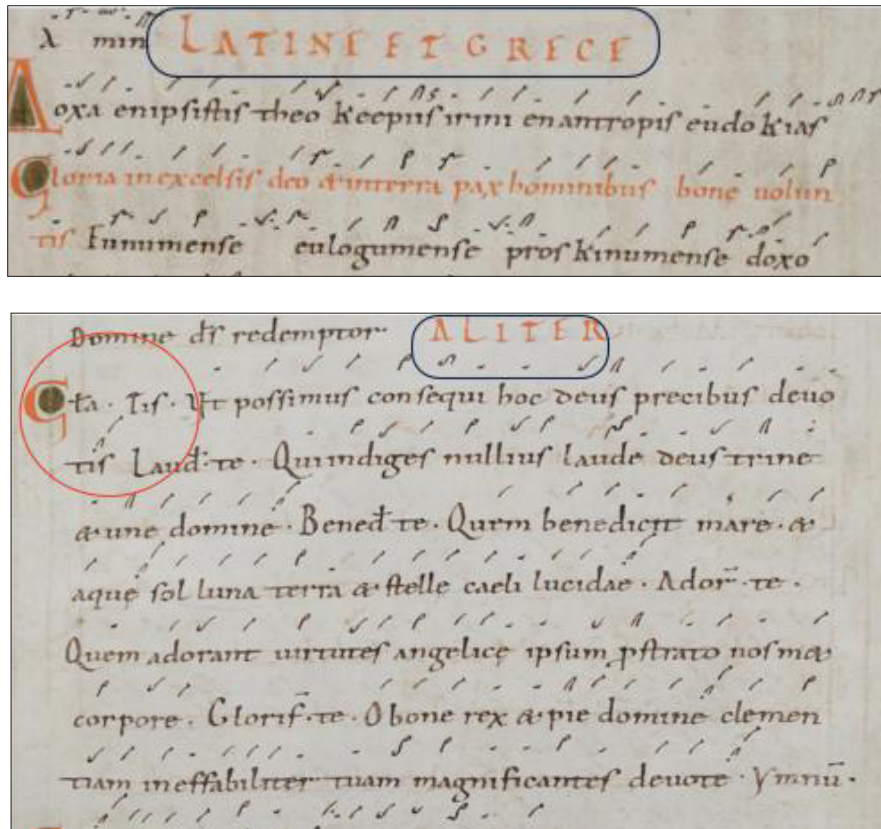 λ min LATINE ET GRECE
Doxa enipsistis theo keepiis irini enantropis eudokias
Gloria in excelsis deo & interra pax hominibus bonę uolun
tis Enumense eulogumense proskinumense doxo
Domine dſ̄ redemptor ALITER
Gl̄a. Tis. Ut possimus consequi hoc deus precibus deuo
tis Laud̄. te. Qui indiges nullius laude deus trine
& une domine. Bened̄ te. Quem benedicit mare. &
aquę sol luna terra & stelle caeli lucidae. Ador̄. te.
Quem adorant uirtutes angelicę ipsum ꝓstrato nos m&
corpore. Glorif̄. te. O bone rex & pie domine clemen
tiam ineffabiliter tuam magnificantes deuote. Ymnū.